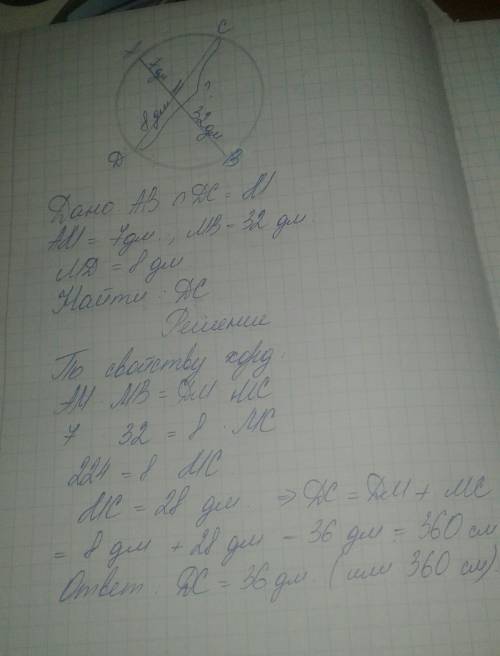 C
A
7 дм
M
?
8 дм
32 дм
D
B
Дано: AB ∩ DC = M
AM = 7 дм., MB = 32 дм.
MD = 8 дм
Найти: DC
Решение
По свойству хорд.
AM · MB = DM · MC
7 · 32 = 8 · MC
224 = 8 · MC
MC = 28 дм ⇒ DC = DM + MC
= 8 дм + 28 дм = 36 дм = 360 см
Ответ: DC = 36 дм (или 360 см)